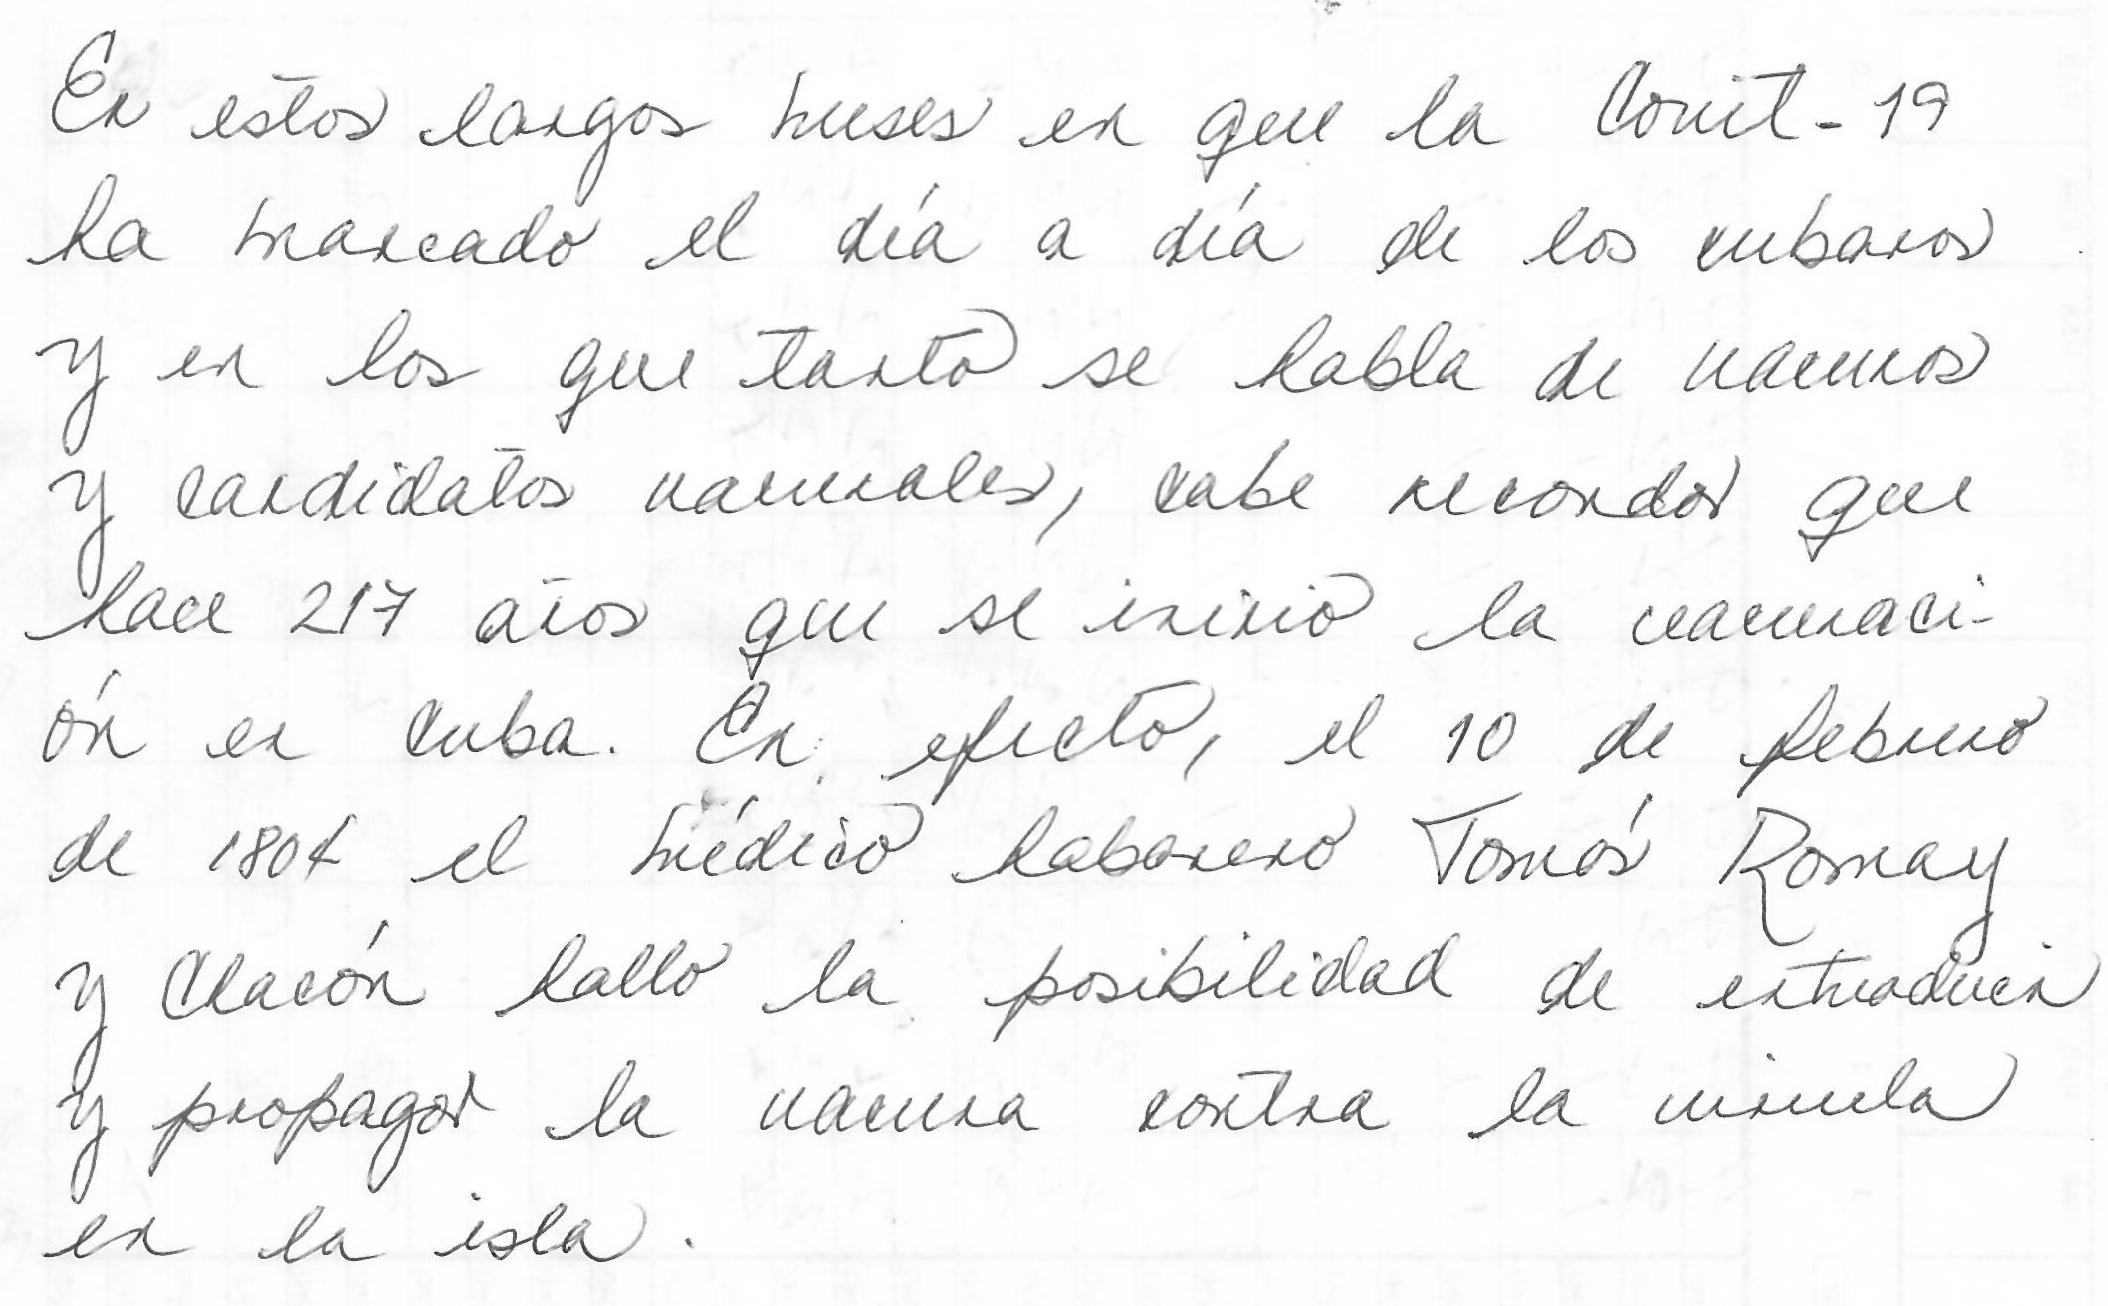 En estos largos meses en que la Covit-19
ha marcado el día a día de los cubanos
y en los que tanto se habla de vacunas
y candidatos vacunales, cabe recordar que
hace 217 años que se inició la vacunaci-
ón en Cuba. En efecto, el 10 de febrero
de 1804 el médico habanero Tomás Romay
y Chacón halló la posibilidad de introducir
y propagar la vacuna contra la viruela
en la isla.